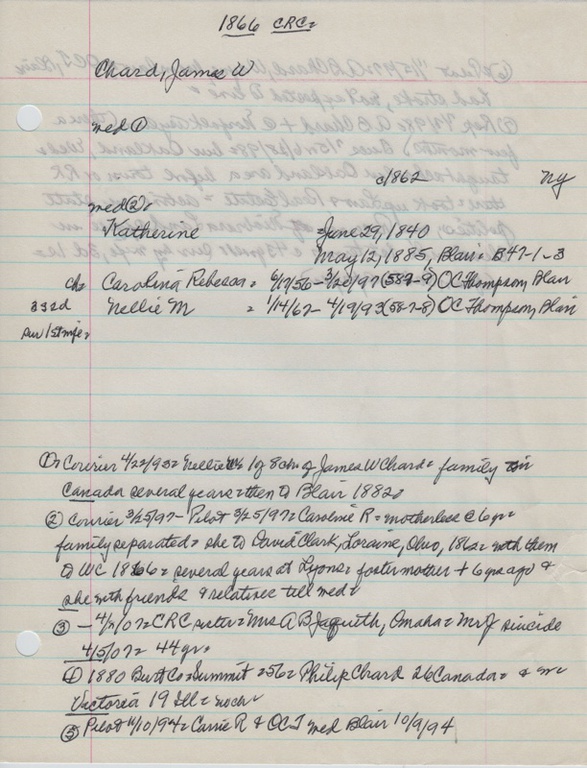 1866 CRC=
Chard, James W
med ①
c/1862 NY
med ②=
Katherine =June 29, 1840
May 12, 1885, Blair= B47-1-3
ch= Carolina Rebecca= 6/17/56-3/20/97(587-9) OC Thompson, Blair
3 32d Nellie M = 1/14/67-4/19/93(587-8) OC Thompson, Blair
sur/1st mfe=
①= Courier 4/22/93= Nellie 1 of 8 ch of James W Chard= family in
Canada several years= then to Blair 1882=
② Courier 3/25/97- Pilot 3/25/97= Caroline R= motherless @ 6 yr=
family separated= she to David Clark, Loraine, Ohio, 1862= with them
to WC 1866= several years at Lyons= foster mother + 6 yrs ago &
she with friends & relatives till med=
③ - 4/2/07= CRC sister= Mrs A B Jaquith, Omaha= Mr J suicide
4/5/07= 44 yr=
④ 1880 Burt Co= Summit =56= Philip Chard 26 Canada= & w
Victoria 19 Ill= noch=
⑤ Pilot 11/10/94= Carrie R & OCT med Blair 10/9/94